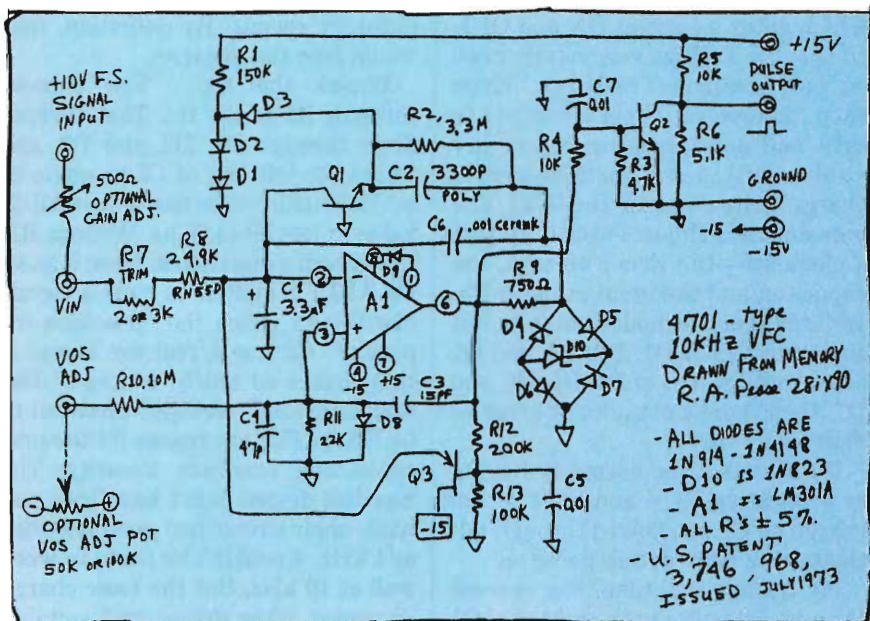 +10V F.S.
SIGNAL
INPUT
500Ω
OPTIONAL
GAIN ADJ.
R7
TRIM
2 OR 3K
R8
24.9K
RN55D
VIN
VOS
ADJ
R10, 10M
OPTIONAL
VOS ADJ POT
50K OR 100K
R1
150K
D3
D2
D1
Q1
R2,
3.3M
C2
3300P
POLY
C6
.001 ceramic
C1
3.3µF
+
-
2
3
+
A1
8
D9
1
6
4
-15
7
+15
C3
15PF
C4
47P
R11
22K
D8
Q3
-15
R12
200K
R13
100K
C5
0.01
R9
750Ω
D4
D5
D10
D6
D7
C7
0.01
R4
10K
R3
4.7K
Q2
R5
10K
R6
5.1K
+15V
PULSE
OUTPUT
GROUND
-15
-15V
4701-TYPE
10KHZ VFC
DRAWN FROM MEMORY
R.A. Pease 28iY90
- ALL DIODES ARE
1N914 - 1N4148
- D10 IS 1N823
- A1 IS LM301A
- ALL R'S ± 5%.
- U.S. PATENT
3,746,968,
ISSUED JULY 1973